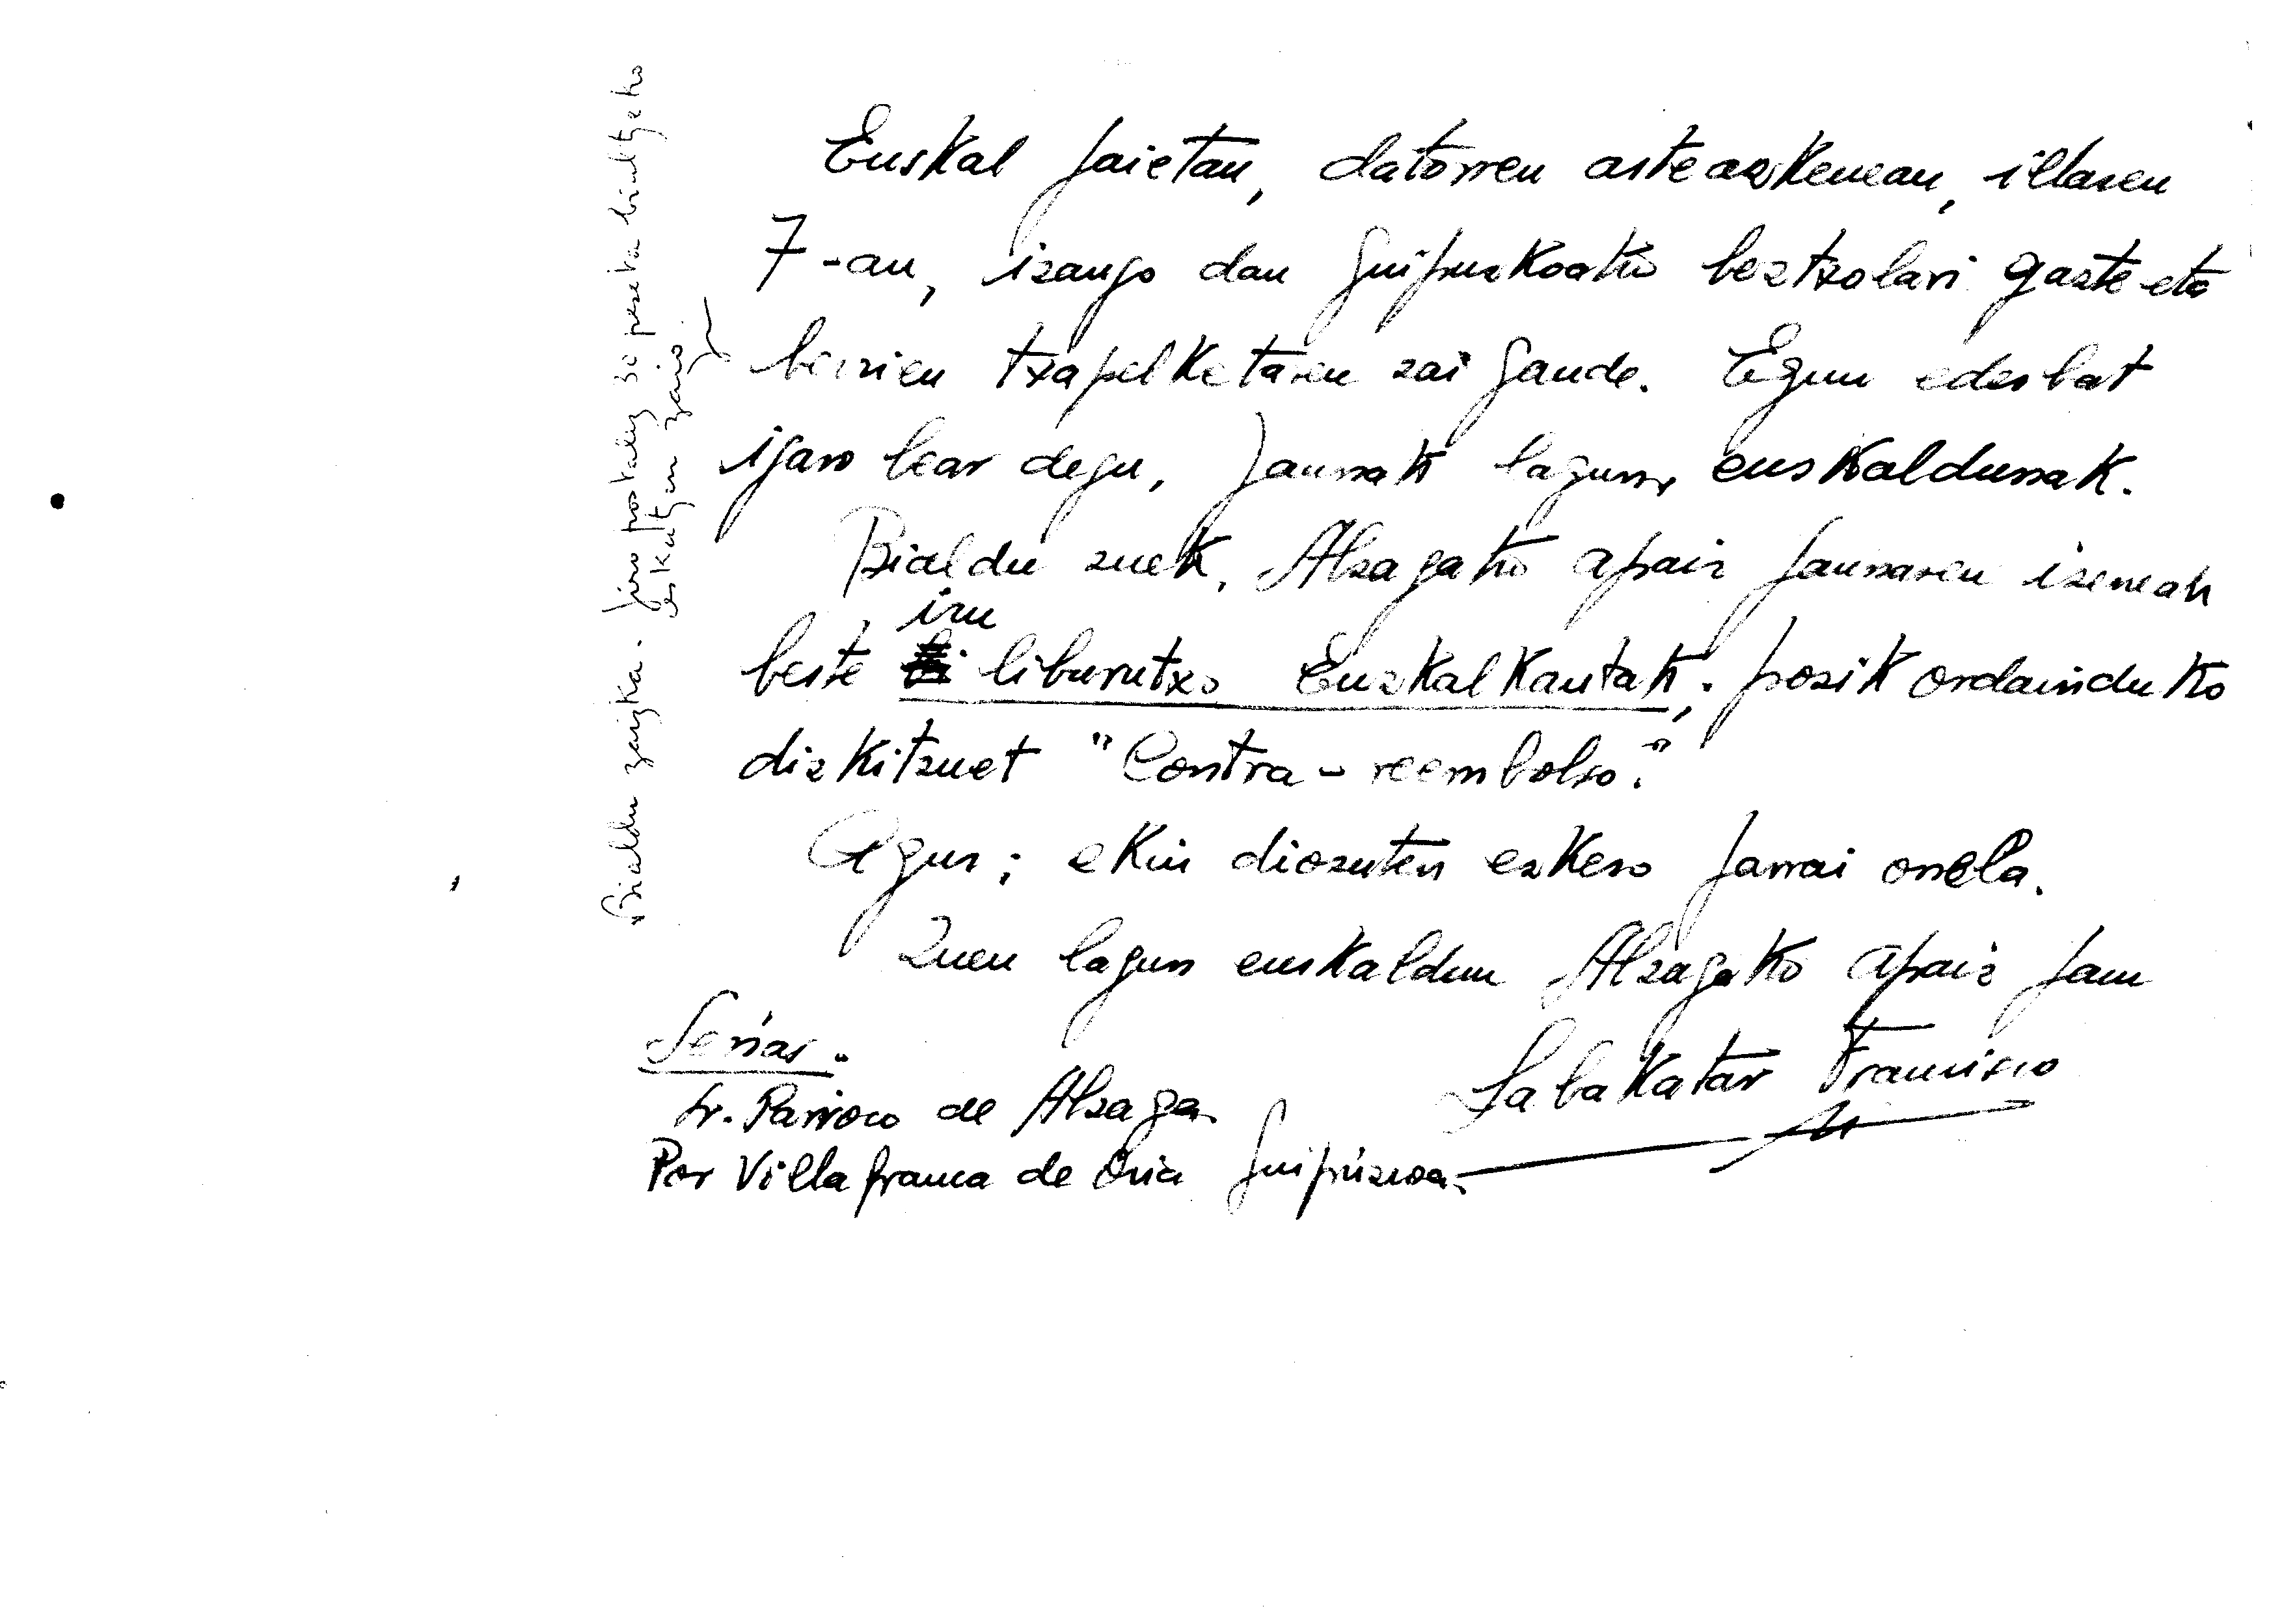 Euskal jaietan, datorren asteazkenean, illaren
7-an, izango dan Guipuzkoako beztxolari gazte eta
berrien txapelketaren zai gaude. Egun eder bat
igaro bear degu, jaunak lagun, euskaldunak.
Bialdu zuek, Alzagako apaiz jaunaren izenean
iru
beste liburutxo Euzkal Kantak; pozik ordainduko
dizkitzuet "Contra-reembolso."
Agur; ekin diozuten ezkero jarrai onela.
Zuen lagun euskaldun Alzagako apaiz jaun
Labakatar Francisco
Señas..
Sr. Parroco de Alzaga.
Por Villafranca de Oria Guipúzcoa.
Bialdu zaizka. Jiro postalez 30 pezeta bialtzeko
eskatzen zaio.